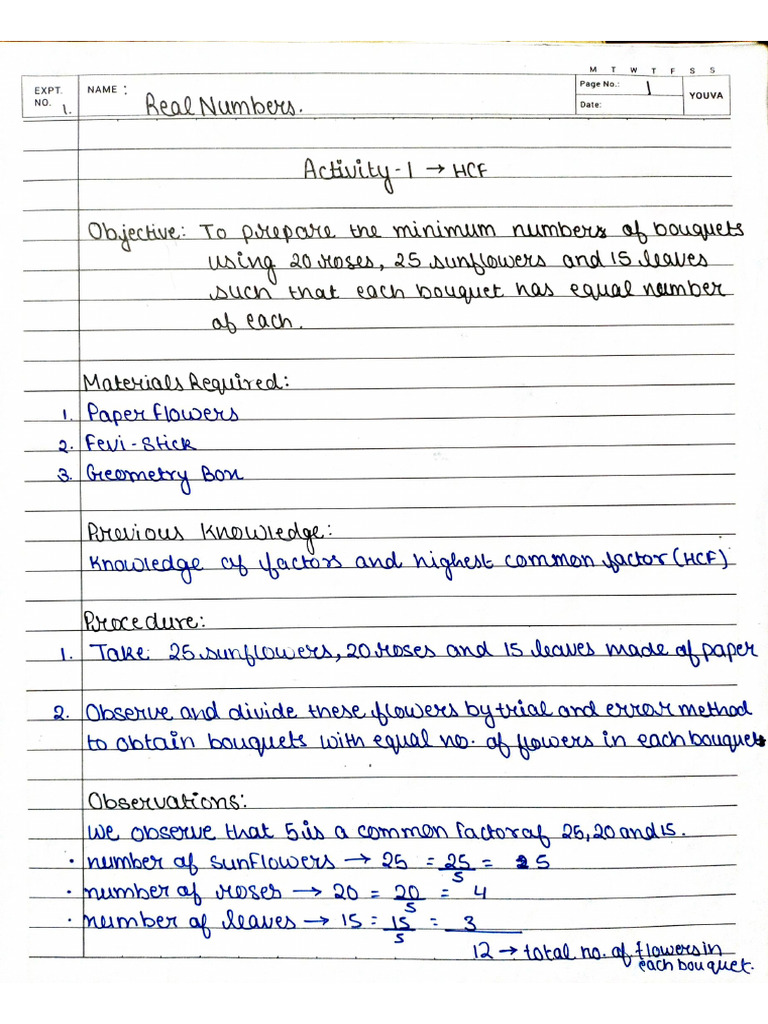 M T W T F S S
EXPT. NO. 1. NAME: Real Numbers. Page No.: 1 YOUVA
Date:
Activity-1 → HCF
Objective: To prepare the minimum numbers of bouquets
using 20 roses, 25 sunflowers and 15 leaves
such that each bouquet has equal number
of each.
Materials Required:
1. Paper flowers
2. Fevi-Stick
3. Geometry Box
Previous Knowledge:
Knowledge of factors and highest common factor (HCF)
Procedure:
1. Take 25 sunflowers, 20 roses and 15 leaves made of paper
2. Observe and divide these flowers by trial and error method
to obtain bouquets with equal no. of flowers in each bouquet
Observations:
We observe that 5 is a common factor of 25, 20 and 15.
• number of sunflowers → 25 = 25/5 = 5
• number of roses → 20 = 20/5 = 4
• number of leaves → 15 = 15/5 = 3
12 → total no. of flowers in
each bouquet.